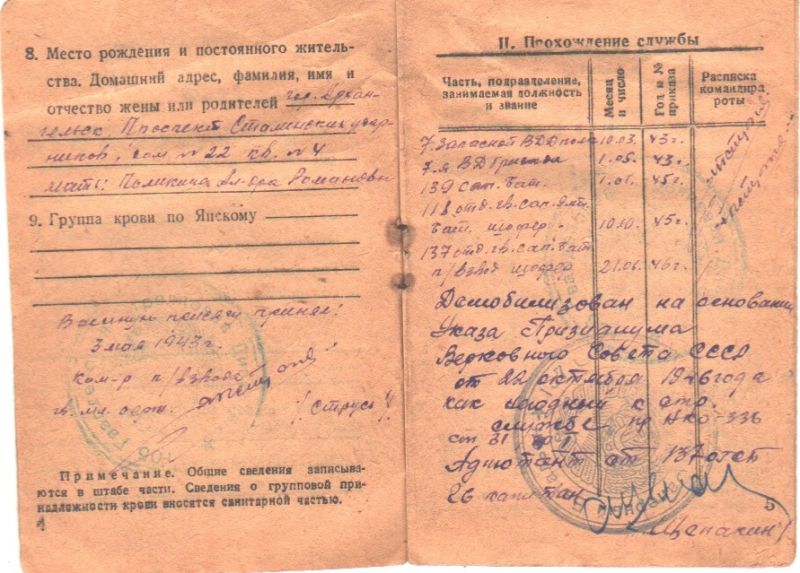 8. Место рождения и постоянного житель-
ства. Домашний адрес, фамилия, имя и
отчество жены или родителей гор. Архан-
гельск, Проспект Сталинских удар-
ников, дом № 22 кв. № 4
мать: Романовна
9. Группа крови по Янскому
Военную присягу принял:
3 мая 1943 г.
ком-р п/взвода
гв. мл. /Струсь/
Примечание. Общие сведения записыва-
ются в штабе части. Сведения о групповой при-
надлежности крови вносятся санитарной частью.
4
II. Прохождение службы
Часть, подразделение,
занимаемая должность
и звание
Месяц
и число
Год и №
приказа
Расписка
командира
роты
7 Запасной ВД полк 10.03. 43 г.
7-я ВД 1.05. 43 г.
139 сап. бат. 45 г.
118 отд. гв. сап.
бат. шофер 10.10. 45 г.
137 отд. гв. сап. бат.
п/взвод шофер 46 г.
Демобилизован на основании
Указа Президиума
Верховного Совета СССР
от 22 октября 1946 года
как годный к
службе пр НКО-336
ст 31
Адютант
гв капитан
5